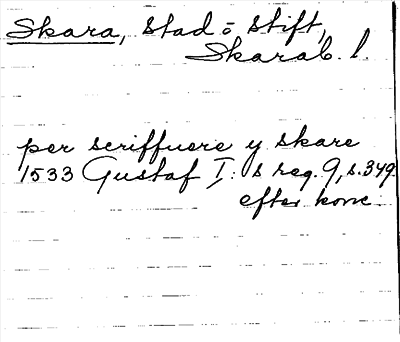 Skara, stad o stift,
Skarab. l.
per scriffuere y skare
1533 Gustaf I:s reg. 9, s. 349.
efter konc.